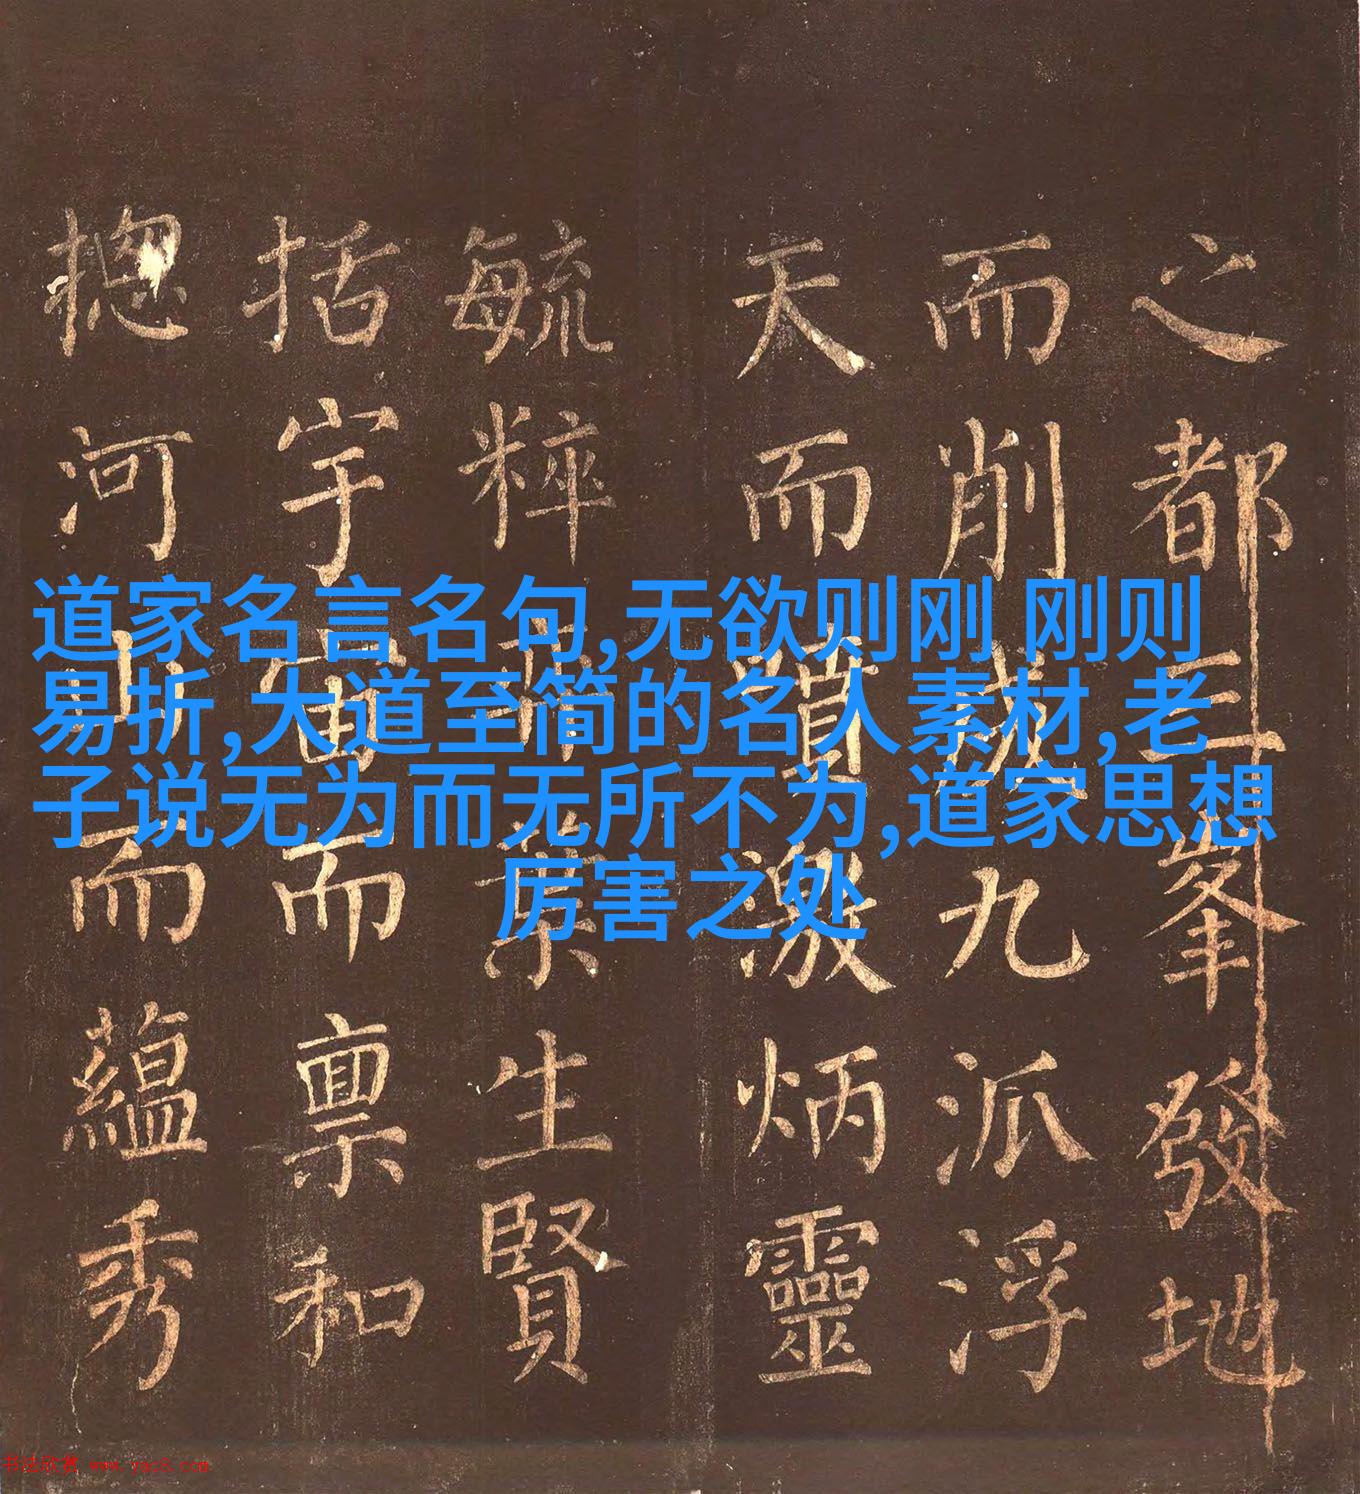 之都三峯發地
而削成九派浮
天而噴激炳靈
毓粹葉生賢
括宇宙而禀和
揔河山而蘊秀
道家名言名句,无欲则刚 刚则
易折,大道至简的名人素材,老
子说无为而无所不为,道家思想
厉害之处
书法欣赏 www.yac8.com